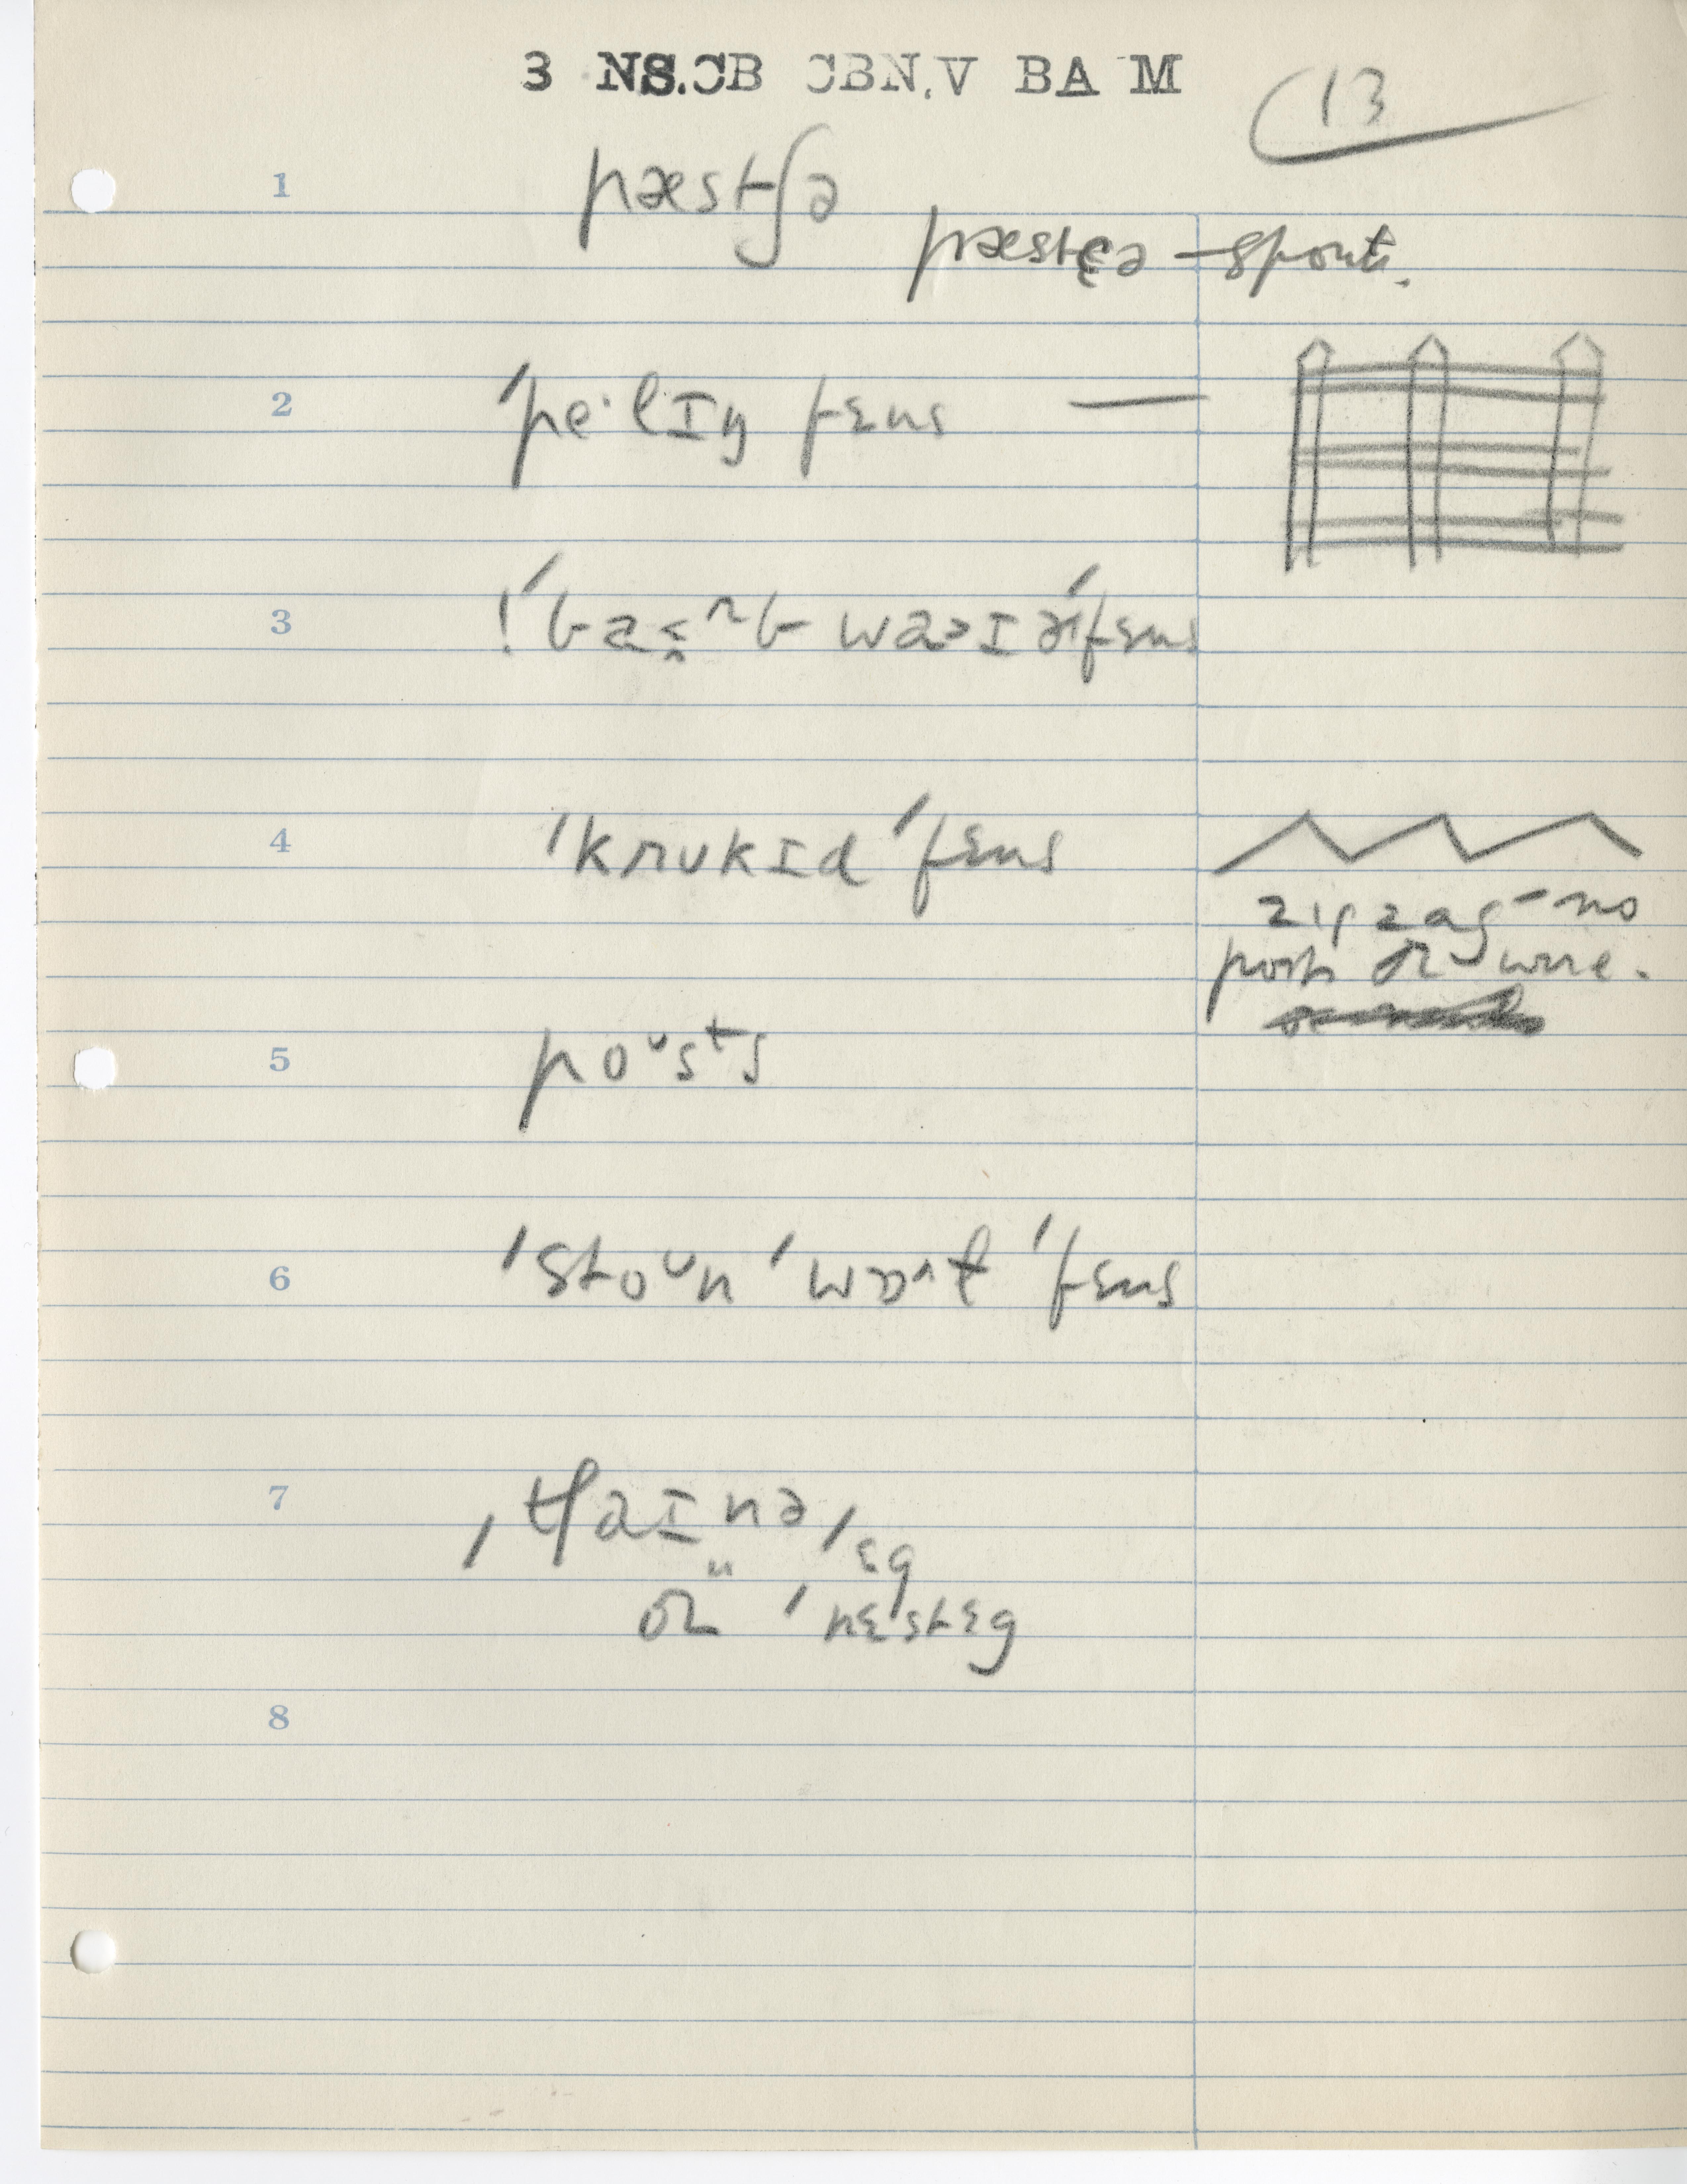 3 NS.CB CBN.V BA M
13
1 pæstʃə
pæstɕə – spont.
2 ˈpe·lɪŋ fɛns —
3 waəɪə ˈfɛns
4 ˈkrukɪd ˈfɛns
zigzag – no
posts or wire.
5 poᵘsᵗs
6 ˈstoᵘn ˈwɒɒˆɫ ˈfɛns
7 ˌtʃaɪnəˌɛg
or ˈnɛstɛg
8